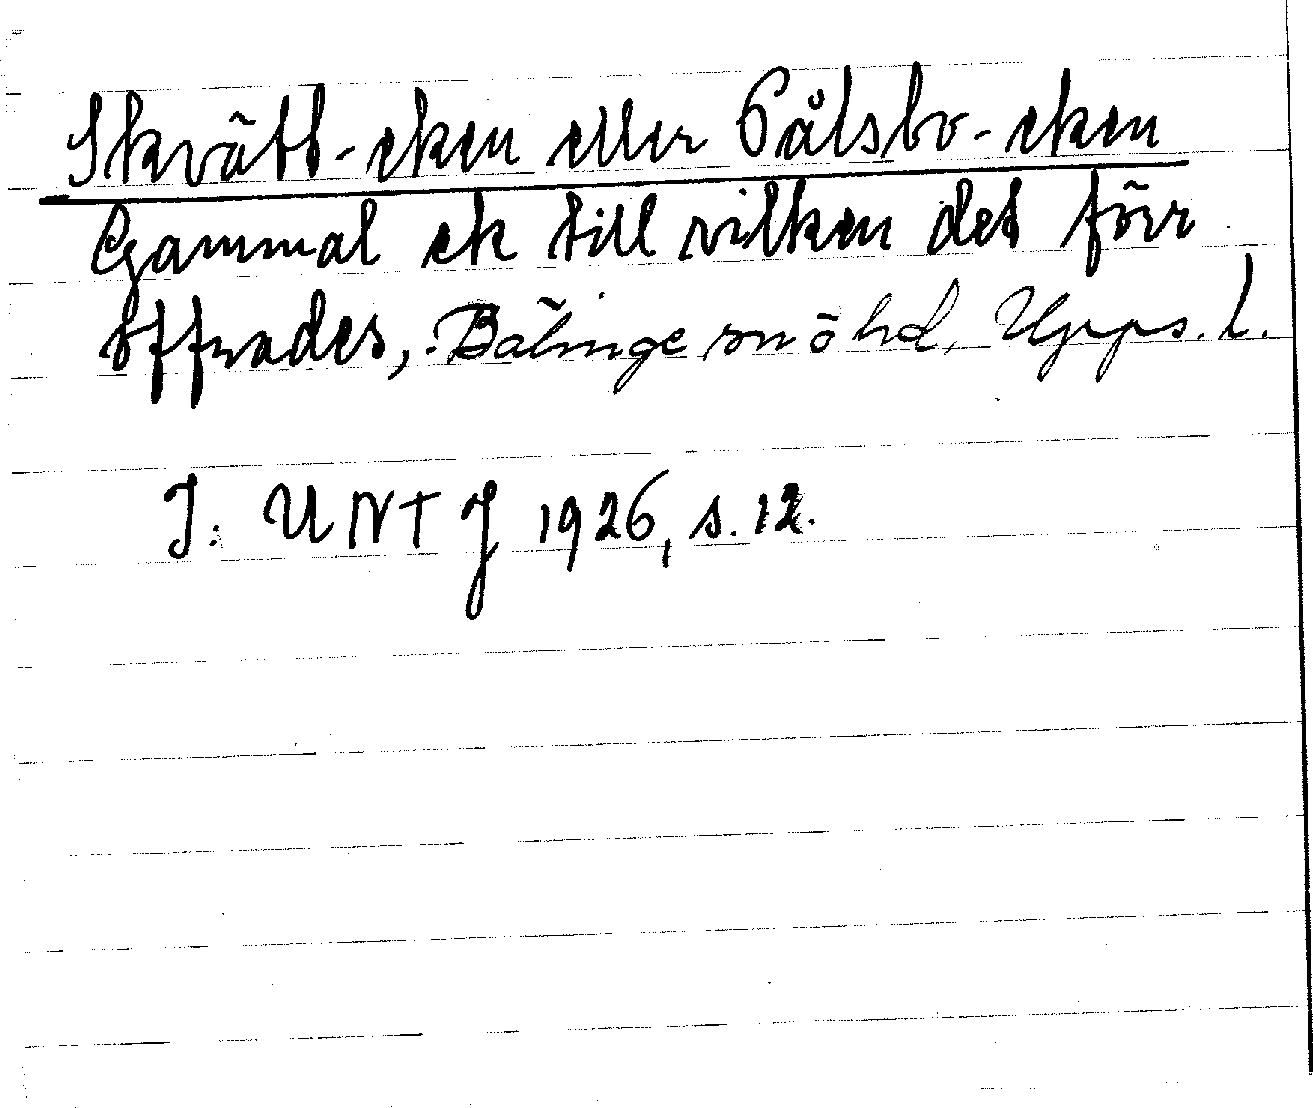 Skvätt-eken eller Pålsbo-eken
Gammal ek till vilken det förr
offrades, Bälinge sn o hd, Upps. l.
I: UNT J 1926, s. 12.